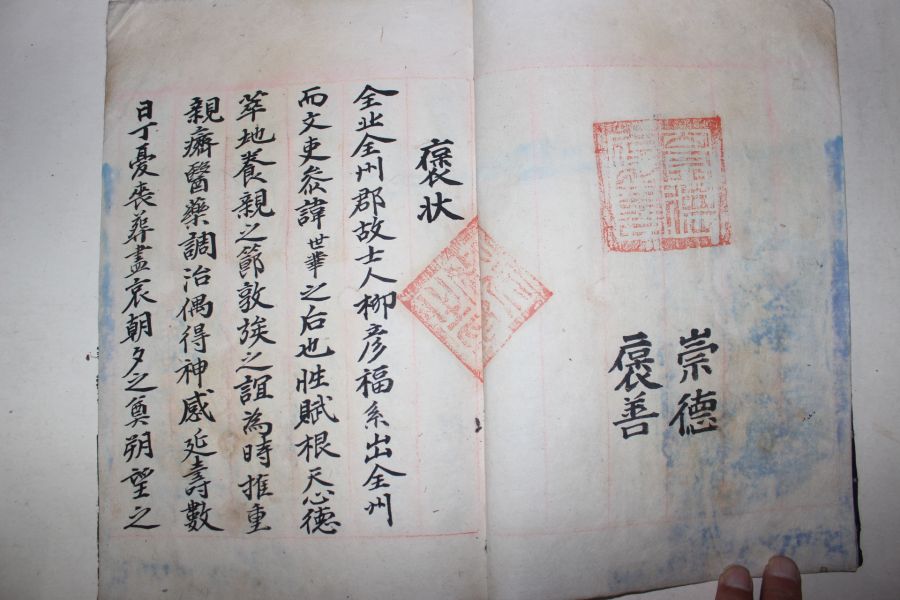 崇德
褒善
褒状
全北全州郡故士人柳彦福系出全州
而文吏叅諱世華之后也性賦根天心德
萃地養親之節敦族之誼為時推重
親癠醫藥調治偶得神感延壽數
日丁憂喪葬盡哀朝夕之奠朔望之